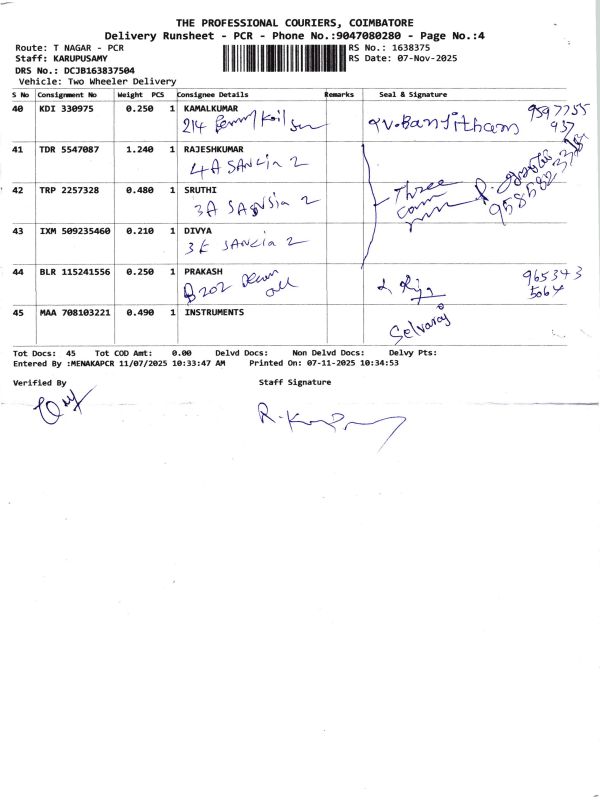 THE PROFESSIONAL COURIERS, COIMBATORE
Delivery Runsheet - PCR - Phone No.:9047080280 - Page No.:4
Route: T NAGAR - PCR RS No.: 1638375
Staff: KARUPUSAMY RS Date: 07-Nov-2025
DRS No.: DCJB163837504
Vehicle: Two Wheeler Delivery
S No Consignment No Weight PCS Consignee Details Remarks Seal & Signature
40 KDI 330975 0.250 1 KAMALKUMAR 9597755
214 937
41 TDR 5547087 1.240 1 RAJESHKUMAR
4A SANCIA 2
42 TRP 2257328 0.480 1 SRUTHI Three
3A 2
43 IXM 509235460 0.210 1 DIVYA
3E SANCIA 2
44 BLR 115241556 0.250 1 PRAKASH 965343
B202 5064
45 MAA 708103221 0.490 1 INSTRUMENTS Selvaraj
Tot Docs: 45 Tot COD Amt: 0.00 Delvd Docs: Non Delvd Docs: Delvy Pts:
Entered By :MENAKAPCR 11/07/2025 10:33:47 AM Printed On: 07-11-2025 10:34:53
Verified By Staff Signature